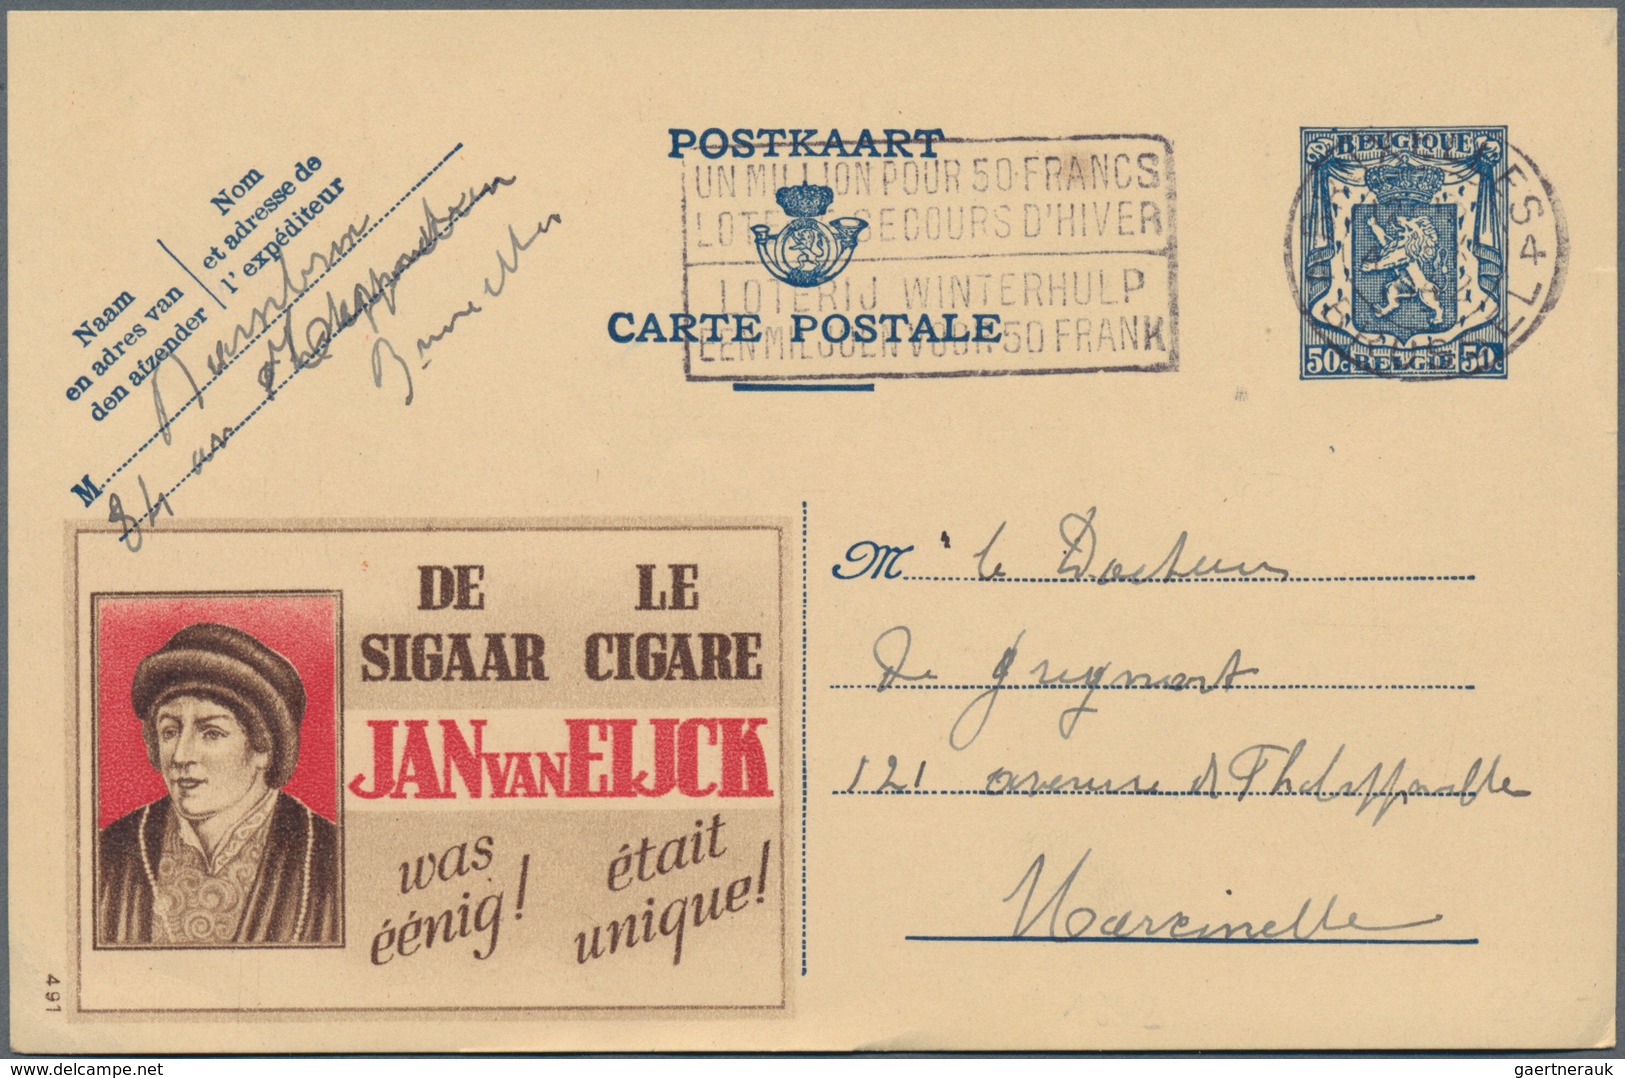 POSTKAART
CARTE POSTALE
UN MILLION POUR 50 FRANCS
LOTERIE SECOURS D'HIVER
LOTERIJ WINTERHULP
EEN MILJOEN VOOR 50 FRANK
BELGIQUE
50c BELGIE 50c
Nom
et adresse de
l'expéditeur
Naam
en adres van
den afzender
M
84 av
Bruxelles
DE SIGAAR
LE CIGARE
JAN VAN EIJCK
was éénig!
était unique!
491
Mr le Docteur
De
121 avenue
Marcinelle
delcampe.net
gaertnerauk